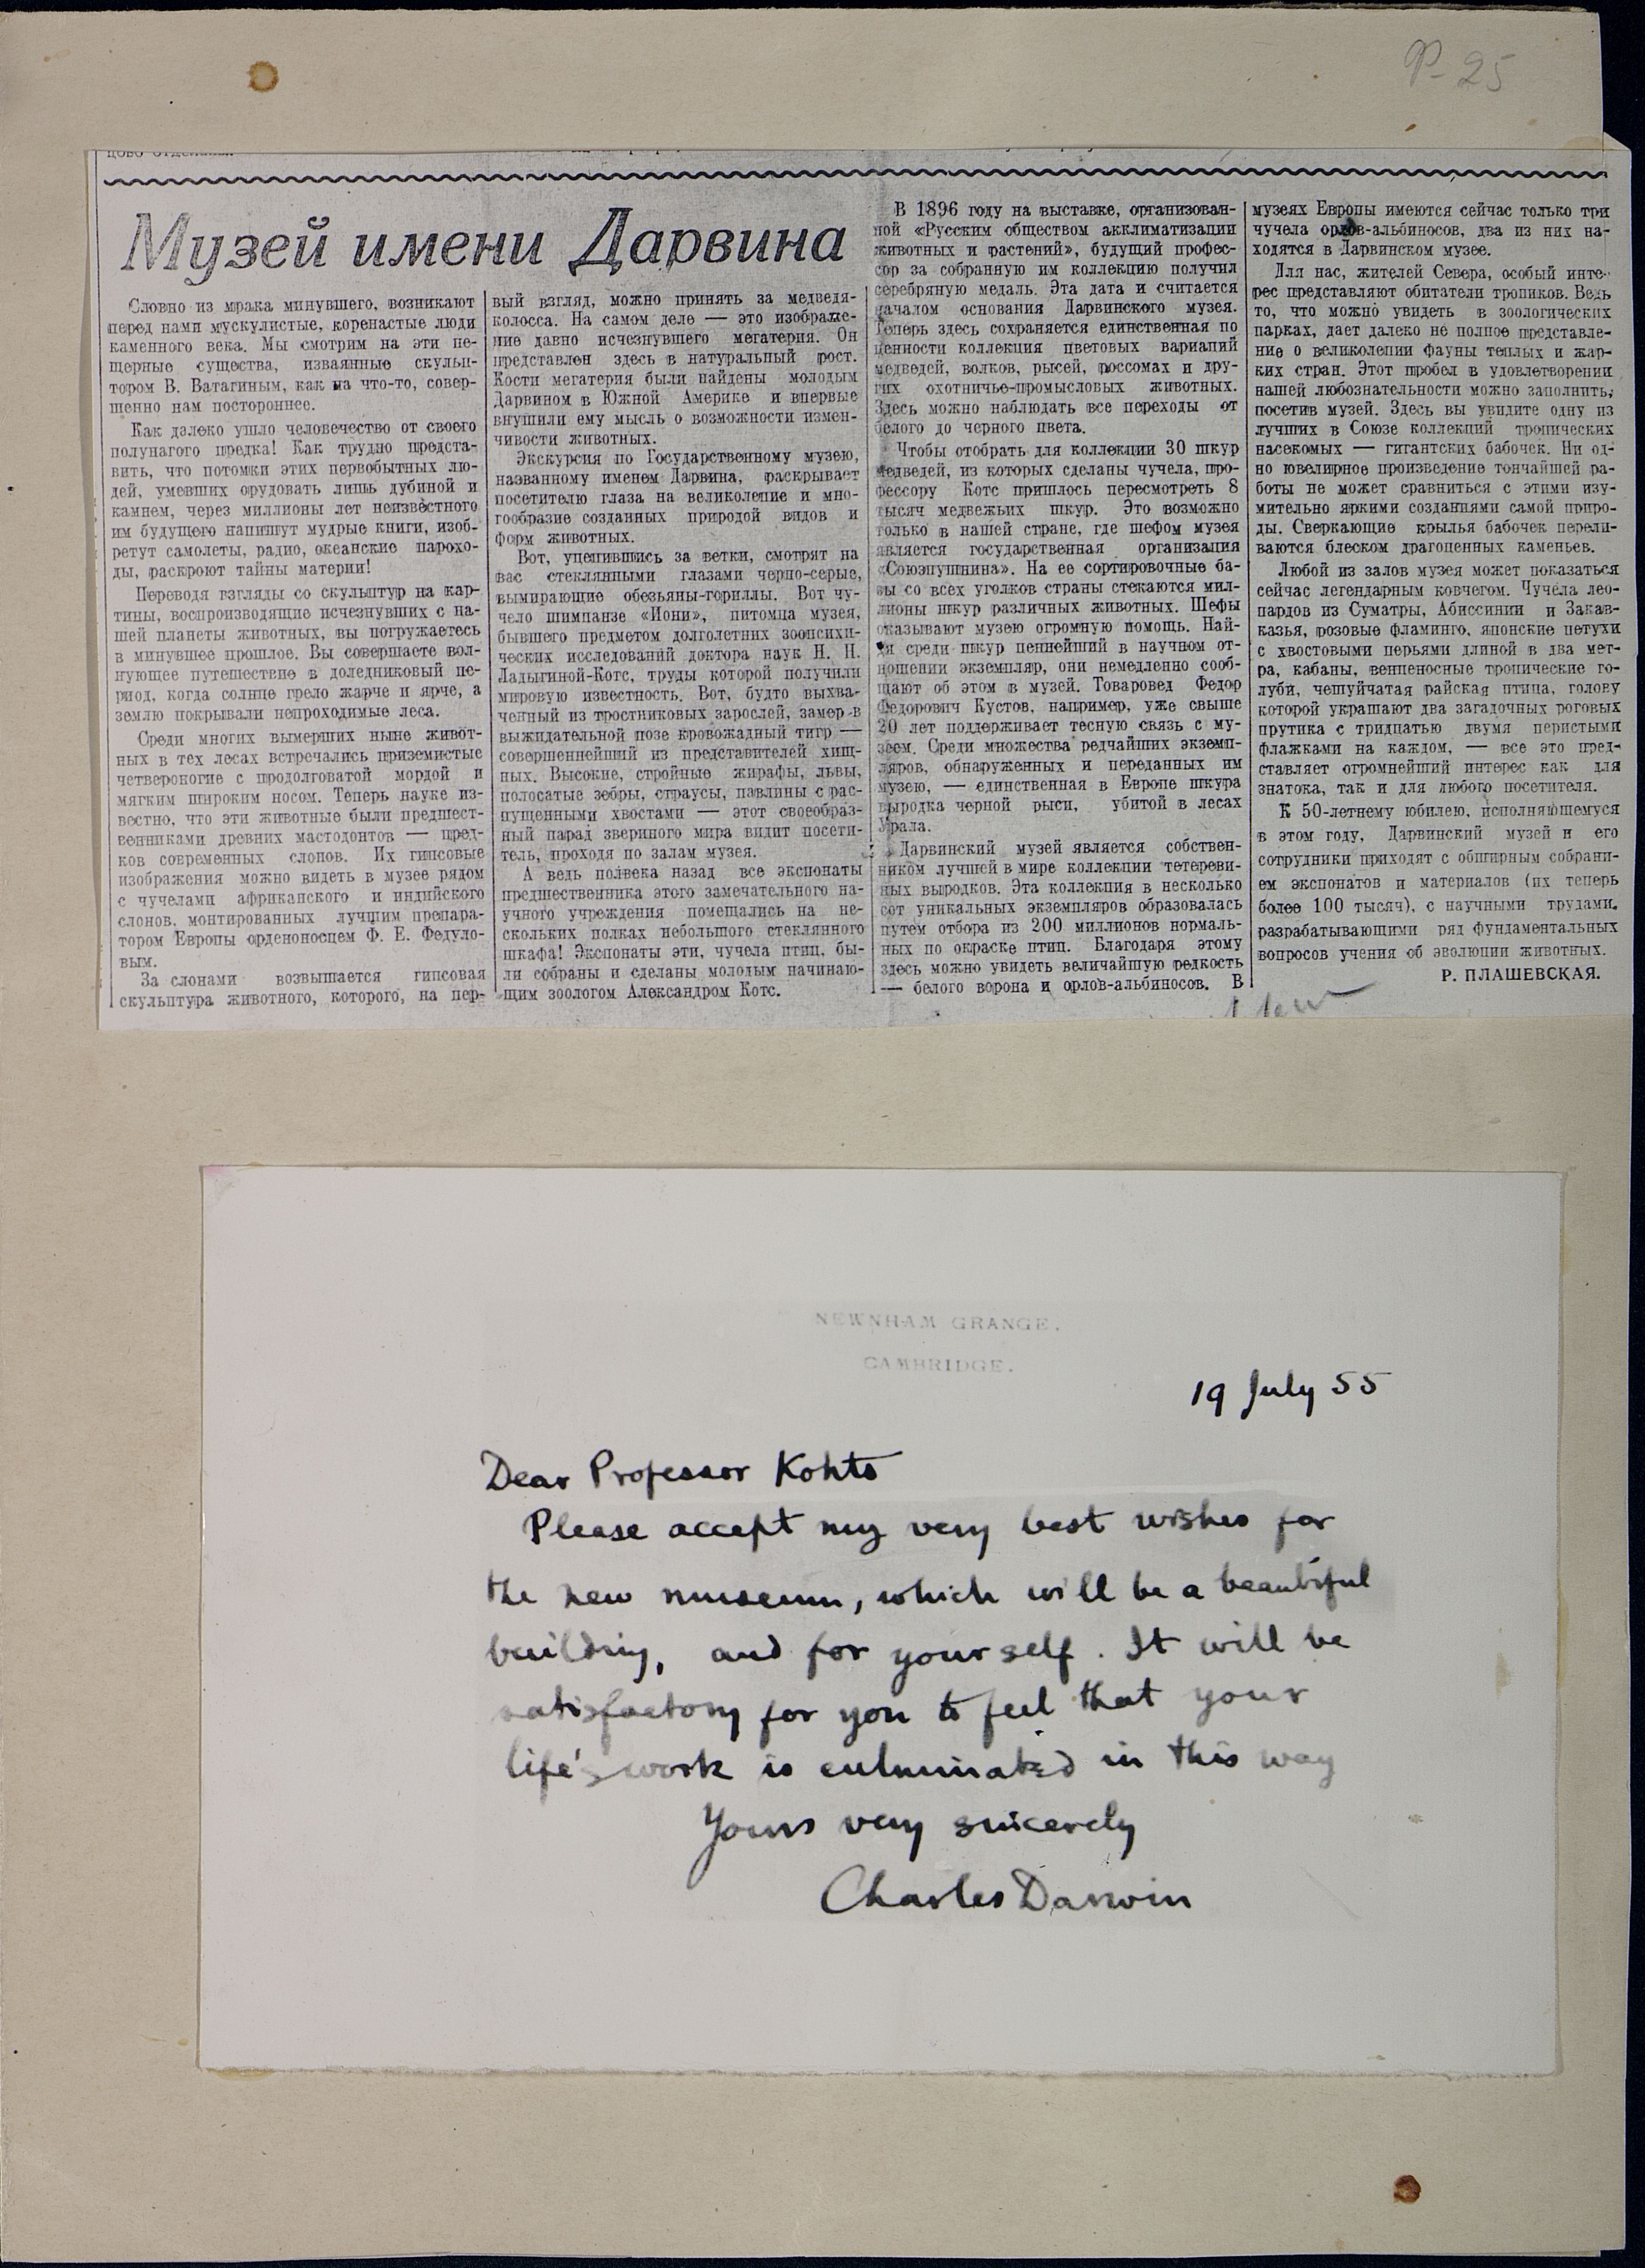 Р-25
Музей имени Дарвина
Словно из мрака минувшего, возникают
перед нами мускулистые, коренастые люди
каменного века. Мы смотрим на эти пе-
щерные существа, изваянные скульп-
тором В. Ватагиным, как на что-то, совер-
шенно нам постороннее.
Как далеко ушло человечество от своего
полунагого предка! Как трудно предста-
вить, что потомки этих первобытных лю-
дей, умевших орудовать лишь дубиной и
камнем, через миллионы лет неизвестного
им будущего напишут мудрые книги, изоб-
ретут самолеты, радио, океанские парохо-
ды, раскроют тайны материи!
Переводя взгляды со скульптур на кар-
тины, воспроизводящие исчезнувших с на-
шей планеты животных, вы погружаетесь
в минувшее прошлое. Вы совершаете вол-
нующее путешествие в доледниковый пе-
риод, когда солнце грело жарче и ярче, а
землю покрывали непроходимые леса.
Среди многих вымерших ныне живот-
ных в тех лесах встречались приземистые
четвероногие с продолговатой мордой и
мягким широким носом. Теперь науке из-
вестно, что эти животные были предшест-
венниками древних мастодонтов — пред-
ков современных слонов. Их гипсовые
изображения можно видеть в музее рядом
с чучелами африканского и индийского
слонов, монтированных лучшим препара-
тором Европы орденоносцем Ф. Е. Федуло-
вым.
За слонами возвышается гипсовая
скульптура животного, которого, на пер-
вый взгляд, можно принять за медведя-
колосса. На самом деле — это изображе-
ние давно исчезнувшего мегатерия. Он
представлен здесь в натуральный рост.
Кости мегатерия были найдены молодым
Дарвином в Южной Америке и впервые
внушили ему мысль о возможности измен-
чивости животных.
Экскурсия по Государственному музею,
названному именем Дарвина, раскрывает
посетителю глаза на великолепие и мно-
гообразие созданных природой видов и
форм животных.
Вот, уцепившись за ветки, смотрят на
вас стеклянными глазами черно-серые,
вымирающие обезьяны-гориллы. Вот чу-
чело шимпанзе «Иони», питомца музея,
бывшего предметом долголетних зоопсихи-
ческих исследований доктора наук Н. Н.
Ладыгиной-Котс, труды которой получили
мировую известность. Вот, будто выхва-
ченный из тростниковых зарослей, замер в
выжидательной позе кровожадный тигр —
совершеннейший из представителей хищ-
ных. Высокие, стройные жирафы, львы,
полосатые зебры, страусы, павлины с рас-
пущенными хвостами — этот своеобраз-
ный парад звериного мира видит посети-
тель, проходя по залам музея.
А ведь полвека назад все экспонаты
предшественника этого замечательного на-
учного учреждения помещались на не-
скольких полках небольшого стеклянного
шкафа! Экспонаты эти, чучела птиц, бы-
ли собраны и сделаны молодым начинаю-
щим зоологом Александром Котс.
В 1896 году на выставке, организован-
ной «Русским обществом акклиматизации
животных и растений», будущий профес-
сор за собранную им коллекцию получил
серебряную медаль. Эта дата и считается
началом основания Дарвинского музея.
Теперь здесь сохраняется единственная по
ценности коллекция цветовых вариаций
медведей, волков, рысей, россомах и дру-
гих охотничье-промысловых животных.
Здесь можно наблюдать все переходы от
белого до черного цвета.
Чтобы отобрать для коллекции 30 шкур
медведей, из которых сделаны чучела, про-
фессору Котс пришлось пересмотреть 8
тысяч медвежьих шкур. Это возможно
только в нашей стране, где шефом музея
является государственная организация
«Союзпушнина». На ее сортировочные ба-
зы со всех уголков страны стекаются мил-
лионы шкур различных животных. Шефы
оказывают музею огромную помощь. Най-
дя среди шкур ценнейший в научном от-
ношении экземпляр, они немедленно сооб-
щают об этом в музей. Товаровед Федор
Федорович Кустов, например, уже свыше
20 лет поддерживает тесную связь с му-
зеем. Среди множества редчайших экземп-
ляров, обнаруженных и переданных им
музею, — единственная в Европе шкура
выродка черной рыси, убитой в лесах
Урала.
Дарвинский музей является собствен-
ником лучшей в мире коллекции тетереви-
ных выродков. Эта коллекция в несколько
сот уникальных экземпляров образовалась
путем отбора из 200 миллионов нормаль-
ных по окраске птиц. Благодаря этому
здесь можно увидеть величайшую редкость
— белого ворона и орлов-альбиносов. В
музеях Европы имеются сейчас только три
чучела орлов-альбиносов, два из них на-
ходятся в Дарвинском музее.
Для нас, жителей Севера, особый инте-
рес представляют обитатели тропиков. Ведь
то, что можно увидеть в зоологических
парках, дает далеко не полное представле-
ние о великолепии фауны теплых и жар-
ких стран. Этот пробел в удовлетворении
нашей любознательности можно заполнить,
посетив музей. Здесь вы увидите одну из
лучших в Союзе коллекций тропических
насекомых — гигантских бабочек. Ни од-
но ювелирное произведение тончайшей ра-
боты не может сравниться с этими изу-
мительно яркими созданиями самой приро-
ды. Сверкающие крылья бабочек перели-
ваются блеском драгоценных каменьев.
Любой из залов музея может показаться
сейчас легендарным ковчегом. Чучела лео-
пардов из Суматры, Абиссинии и Закав-
казья, розовые фламинго, японские петухи
с хвостовыми перьями длиной в два мет-
ра, кабаны, венценосные тропические го-
луби, чешуйчатая райская птица, голову
которой украшают два загадочных роговых
прутика с тридцатью двумя перистыми
флажками на каждом, — все это пред-
ставляет огромнейший интерес как для
знатока, так и для любого посетителя.
К 50-летнему юбилею, исполняющемуся
в этом году, Дарвинский музей и его
сотрудники приходят с обширным собрани-
ем экспонатов и материалов (их теперь
более 100 тысяч), с научными трудами,
разрабатывающими ряд фундаментальных
вопросов учения об эволюции животных.
Р. ПЛАШЕВСКАЯ.
NEWNHAM GRANGE,
CAMBRIDGE.
19 July 55
Dear Professor Kohts
Please accept my very best wishes for
the new museum, which will be a beautiful
building, and for yourself. It will be
satisfactory for you to feel that your
life's work is culminated in this way
Yours very sincerely
Charles Darwin